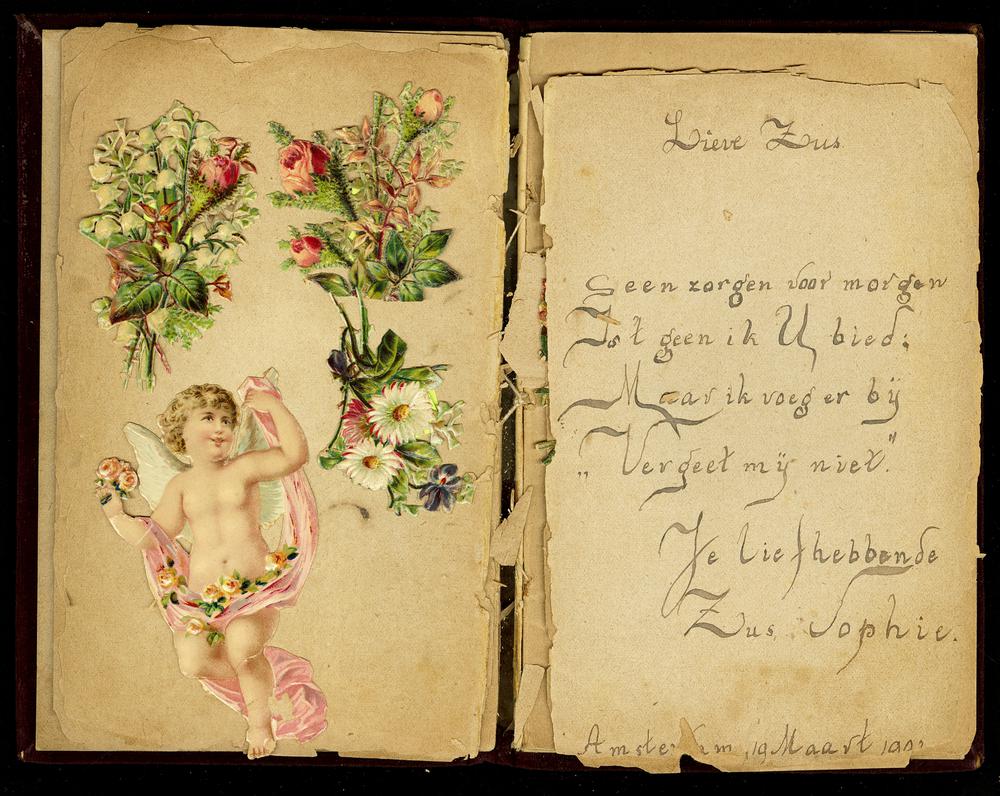 Lieve Zus
Geen zorgen voor morgen
Is t geen ik U bied;
Maar ik voeg er bij
„Vergeet mij niet."
Je liefhebbende
Zus Sophie.
19 Maart